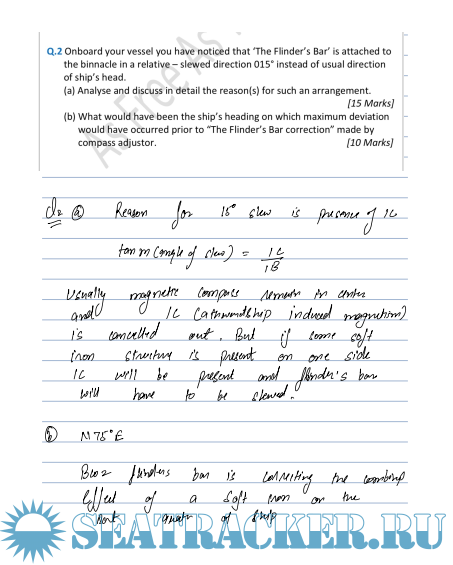 Q.2 Onboard your vessel you have noticed that 'The Flinder's Bar' is attached to
the binnacle in a relative – slewed direction 015° instead of usual direction
of ship's head.
(a) Analyse and discuss in detail the reason(s) for such an arrangement.
[15 Marks]
(b) What would have been the ship's heading on which maximum deviation
would have occurred prior to "The Flinder's Bar correction" made by
compass adjustor.
[10 Marks]
As Free As
Q2 (a) Reason for 15° slew is presence of IC
tan m (angle of slew) = IC
IB
Usually magnetic compass remain in center
and IC (athwartship induced magnetism)
is cancelled out. But if some soft
iron structure is present on one side
IC will be present and flinder's bar
will have to be slewed.
(b) N 75° E
flinders bar is correcting the
effect of a soft iron on the
of ship
SEATRACKER.RU